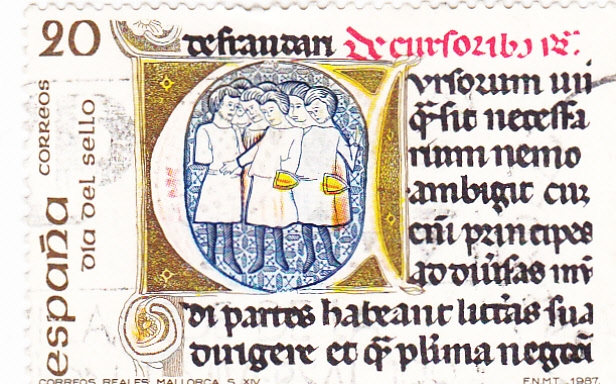 20
CORREOS
día del sello
españa
defraudari De cursoribus
ursorum uii
q̄ sit necessa
rium nemo
ambigit cur
cuī principes
ad diuersas mū
di partes habeant litteras sua
dirigere et q̄ plima negocī
CORREOS REALES MALLORCA S. XIV
F.N.M.T. 1987